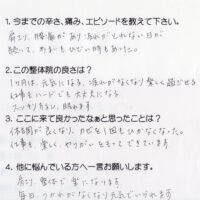 1. 今までの辛さ、痛み、エピソードを教えて下さい。
肩こり、腰痛があり 疲れがとれない日が
続いて、めまいもひどい時もあった。
2.この整体院の良さは？
1ヶ月は、元気になる、疲れがなくなり 楽しく過ごせる
仕事もハードでも 大丈夫になる
3. ここに来て良かったなぁと思ったことは？
体調が良くなり、カゼも1回もひかなくなった。
仕事も、楽しく やりがいをもって できています。
4. 他に悩んでいる方へ一言お願いします。
肩こり、整体で 楽になります
毎日、つかれがなくなり 元気でいられます